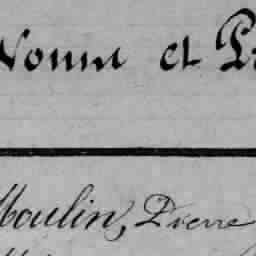 Noms et Pr
Moulin, Pierre